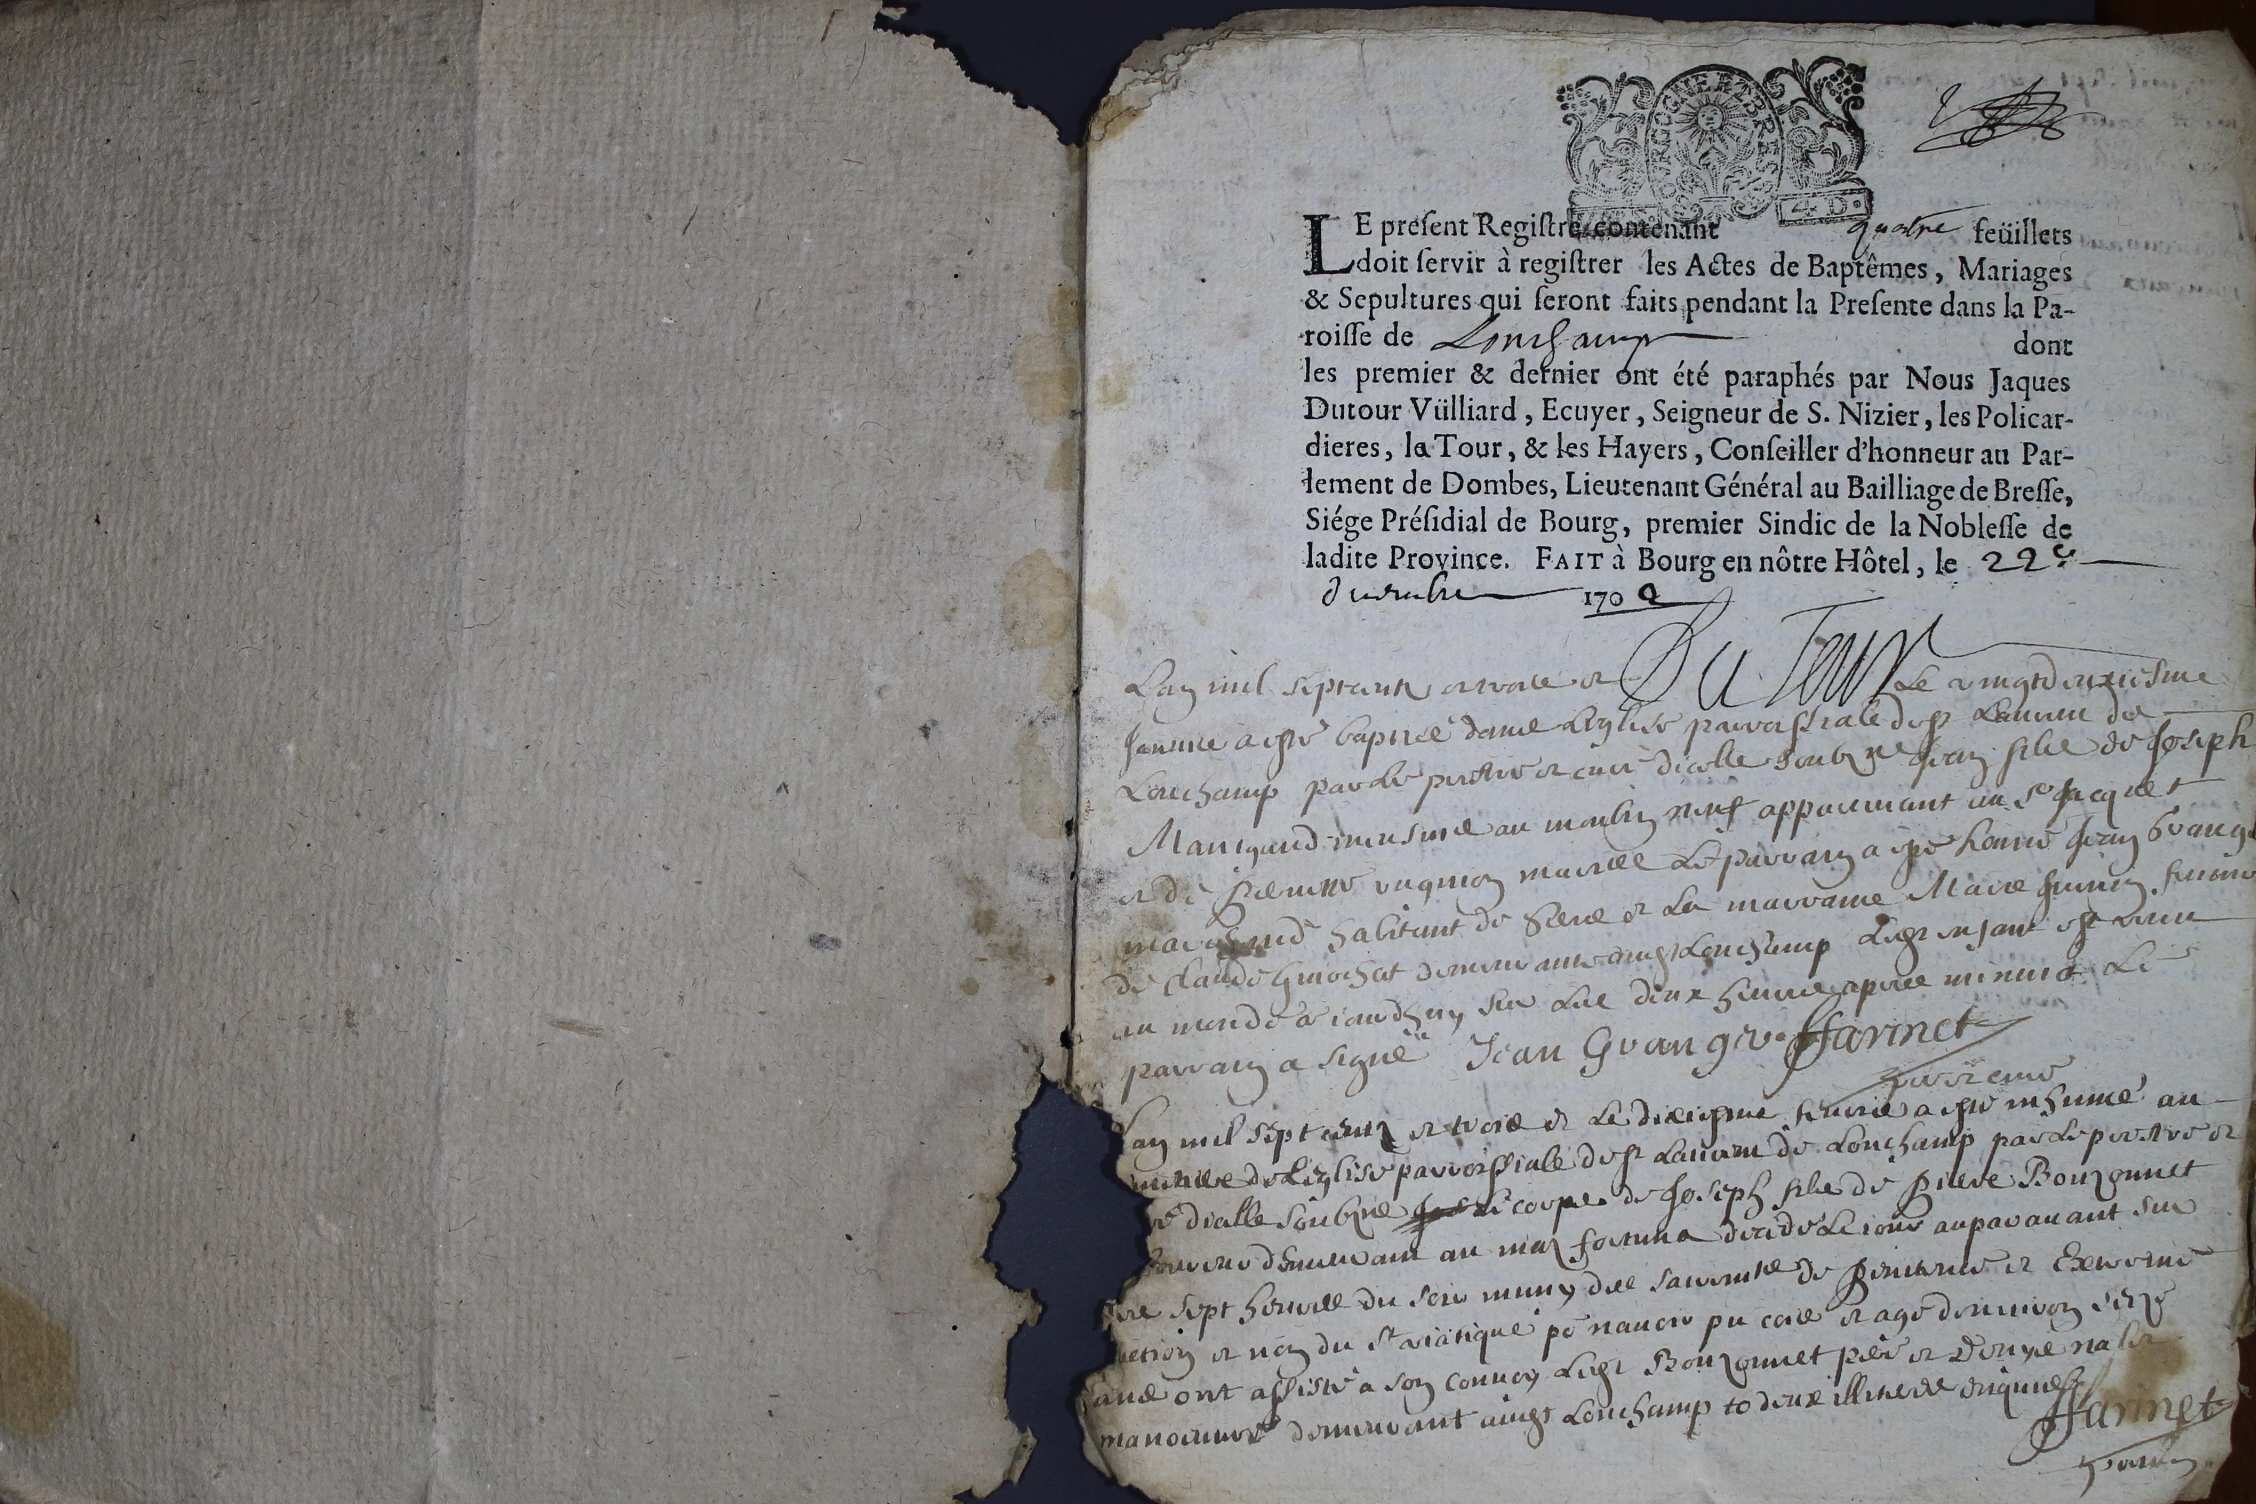 BOURGOGNE ET BRESSE
4 D.
LE preſent Regiſtre contenant quatre feüillets
doit ſervir à regiſtrer les Actes de Baptêmes, Mariages
& Sepultures qui ſeront faits pendant la Preſente dans la Pa-
roiſſe de Lonchamp dont
les premier & dernier ont été paraphés par Nous Jaques
Dutour Vülliard, Ecuyer, Seigneur de S. Nizier, les Policar-
dieres, la Tour, & les Hayers, Conſeiller d'honneur au Par-
lement de Dombes, Lieutenant Général au Bailliage de Breſſe,
Siége Préſidial de Bourg, premier Sindic de la Nobleſſe de
ladite Province. FAIT à Bourg en nôtre Hôtel, le 22e
decembre 1702
Du Tour
Lan mil sept cents et trois et Le vingtdeuxiesme
Janvier a esté baptisé dans Leglise parroissiale de st Laurent de
Lonchamp par le prestre et curé dicelle soubzné Jean fils de Joseph
Manigand meusnier au moulin neuf appartenant au sr Jacquet
et de mariés Le parrain a esté honné Jean Grange
marchand habitant de et La marraine Marie femme
de Claude Guichat demeurante audt Lonchamp Ledt enfant est venu
au monde sur Les deux heures apres minuit Le
parrain a signé Jean Grange Farinet
prestre curé
Lan mil sept cents et trois et Le dixiesme fevrier a esté inhumé au
cimitiere de Leglise parroissiale de st Laurent de Lonchamp par Le prestre et
curé dicelle soubzné Le corps de Joseph fils de Pierre Bouzonnet
demeurant au mas fortuna decedé Le iour auparavant sur
les sept heures du soir muny des sacrements de Penitence et Extreme
onction et non du st viatique pr navoir pu et agé denviron seize
ans ont assisté a son convoy Ledt Bouzonnet pere et Denys
manoeuvre demeurant audt Lonchamp to deux illiteres enquis
Farinet